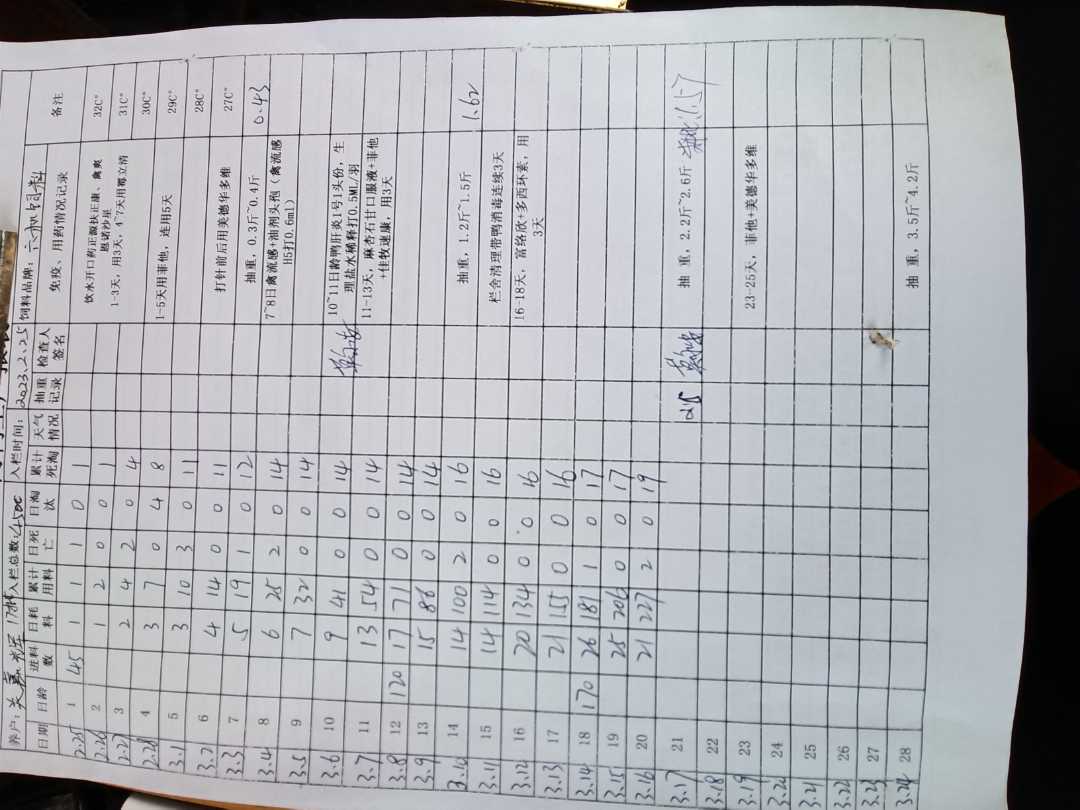 养户: 关嘉程 17批 入栏总数: 4500 入栏时间: 2023.2.25 饲料品牌: 六和饲料
日期 日龄 进料数 日耗料 累计用料 日死亡 日淘汰 累计死淘 天气情况 抽重记录 检查人签名 免疫、用药情况记录 备注
2.25 1 45 1 1 1 0 1 饮水开口药正源扶正康、禽爽恩诺沙星 32C°
2.26 2 1 2 0 0 1 1-3天, 用3天, 4~7天用霉立清 31C°
2.27 3 2 4 2 0 4 30C°
2.28 4 3 7 0 4 8 1-5天用菲他, 连用5天 29C°
3.1 5 3 10 3 0 11 28C°
3.2 6 4 14 0 0 11 打针前后用美德华多维 27C°
3.3 7 5 19 1 0 12 抽重, 0.3斤~0.4斤 0.43
3.4 8 6 25 2 0 14 7~8日禽流感+油剂头孢 (禽流感H5打0.6ml)
3.5 9 7 32 0 0 14
3.6 10 9 41 0 0 14 10~11日龄鸭肝炎1号1头份, 生理盐水稀释打0.5ML/羽
3.7 11 13 54 0 0 14 11-13天, 麻杏石甘口服液+菲他+佳牧速康, 用3天
3.8 12 120 17 71 0 0 14
3.9 13 15 86 0 0 14
3.10 14 14 100 2 0 16 抽重, 1.2斤~1.5斤 1.62
3.11 15 14 114 0 0 16 栏舍清理带鸭消毒连续3天
3.12 16 20 134 0 0 16 16-18天, 富络欣+多西环素, 用3天
3.13 17 21 155 0 0 16
3.14 18 170 26 181 1 0 17
3.15 19 25 206 0 0 17
3.16 20 21 227 2 0 19
3.17 21 抽 重, 2.2斤~2.6斤 1.57
3.18 22
3.19 23 23-25天, 菲他+美德华多维
3.20 24
3.21 25
3.22 26
3.23 27
3.24 28 抽 重, 3.5斤~4.2斤